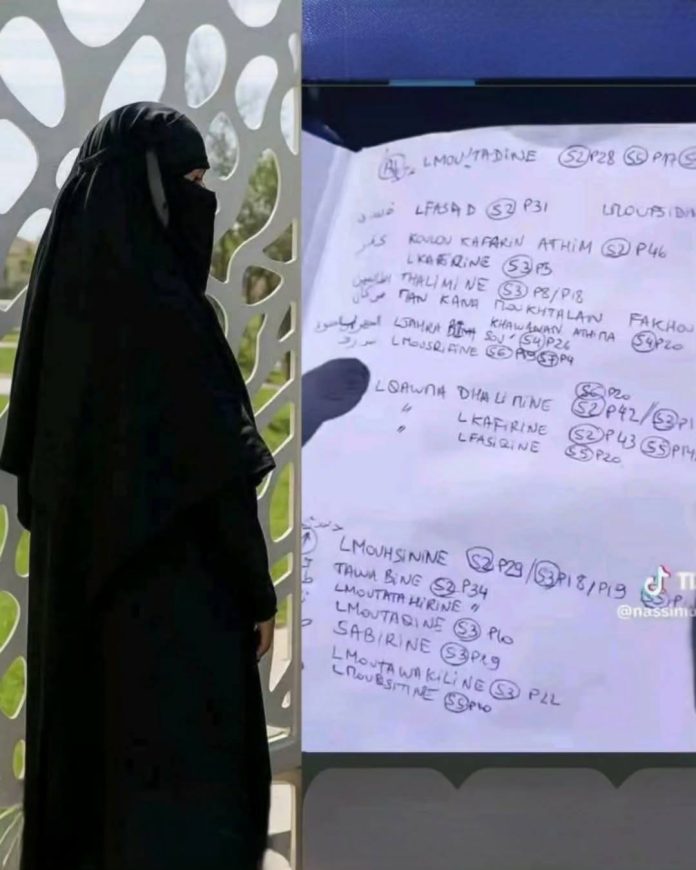 LMOU'TADINE S2 P28 S5 P17
فسد LFASAD S2 P31 LMOUFSIDIN
كفر KOULOU KAFARIN ATHIM S2 P46
LKAFIRINE S3 P5
الظالمين THALIMINE S3 P8/P18
من كان MAN KANA MOUKHTALAN FAKHOU
KHAWANAN ATHIMA S4 P20
LJAHRA BI SOU' S4 P26
LMOUSRIFINE S6 S7 P4
LQAWMA DHALIMINE S6 P20
S2 P42 / S3 P1
" LKAFIRINE S2 P43 S5 P14
" LFASIQINE S5 P20
LMOUHSININE S2 P29 / S3 P18 / P19 S5 P
TAWABINE S2 P34
LMOUTATAHIRINE "
LMOUTAQINE S3 P10
SABIRINE S3 P29
LMOUTAWAKILINE S3 P22
LMOUQSITINE S5 P10
@nassim